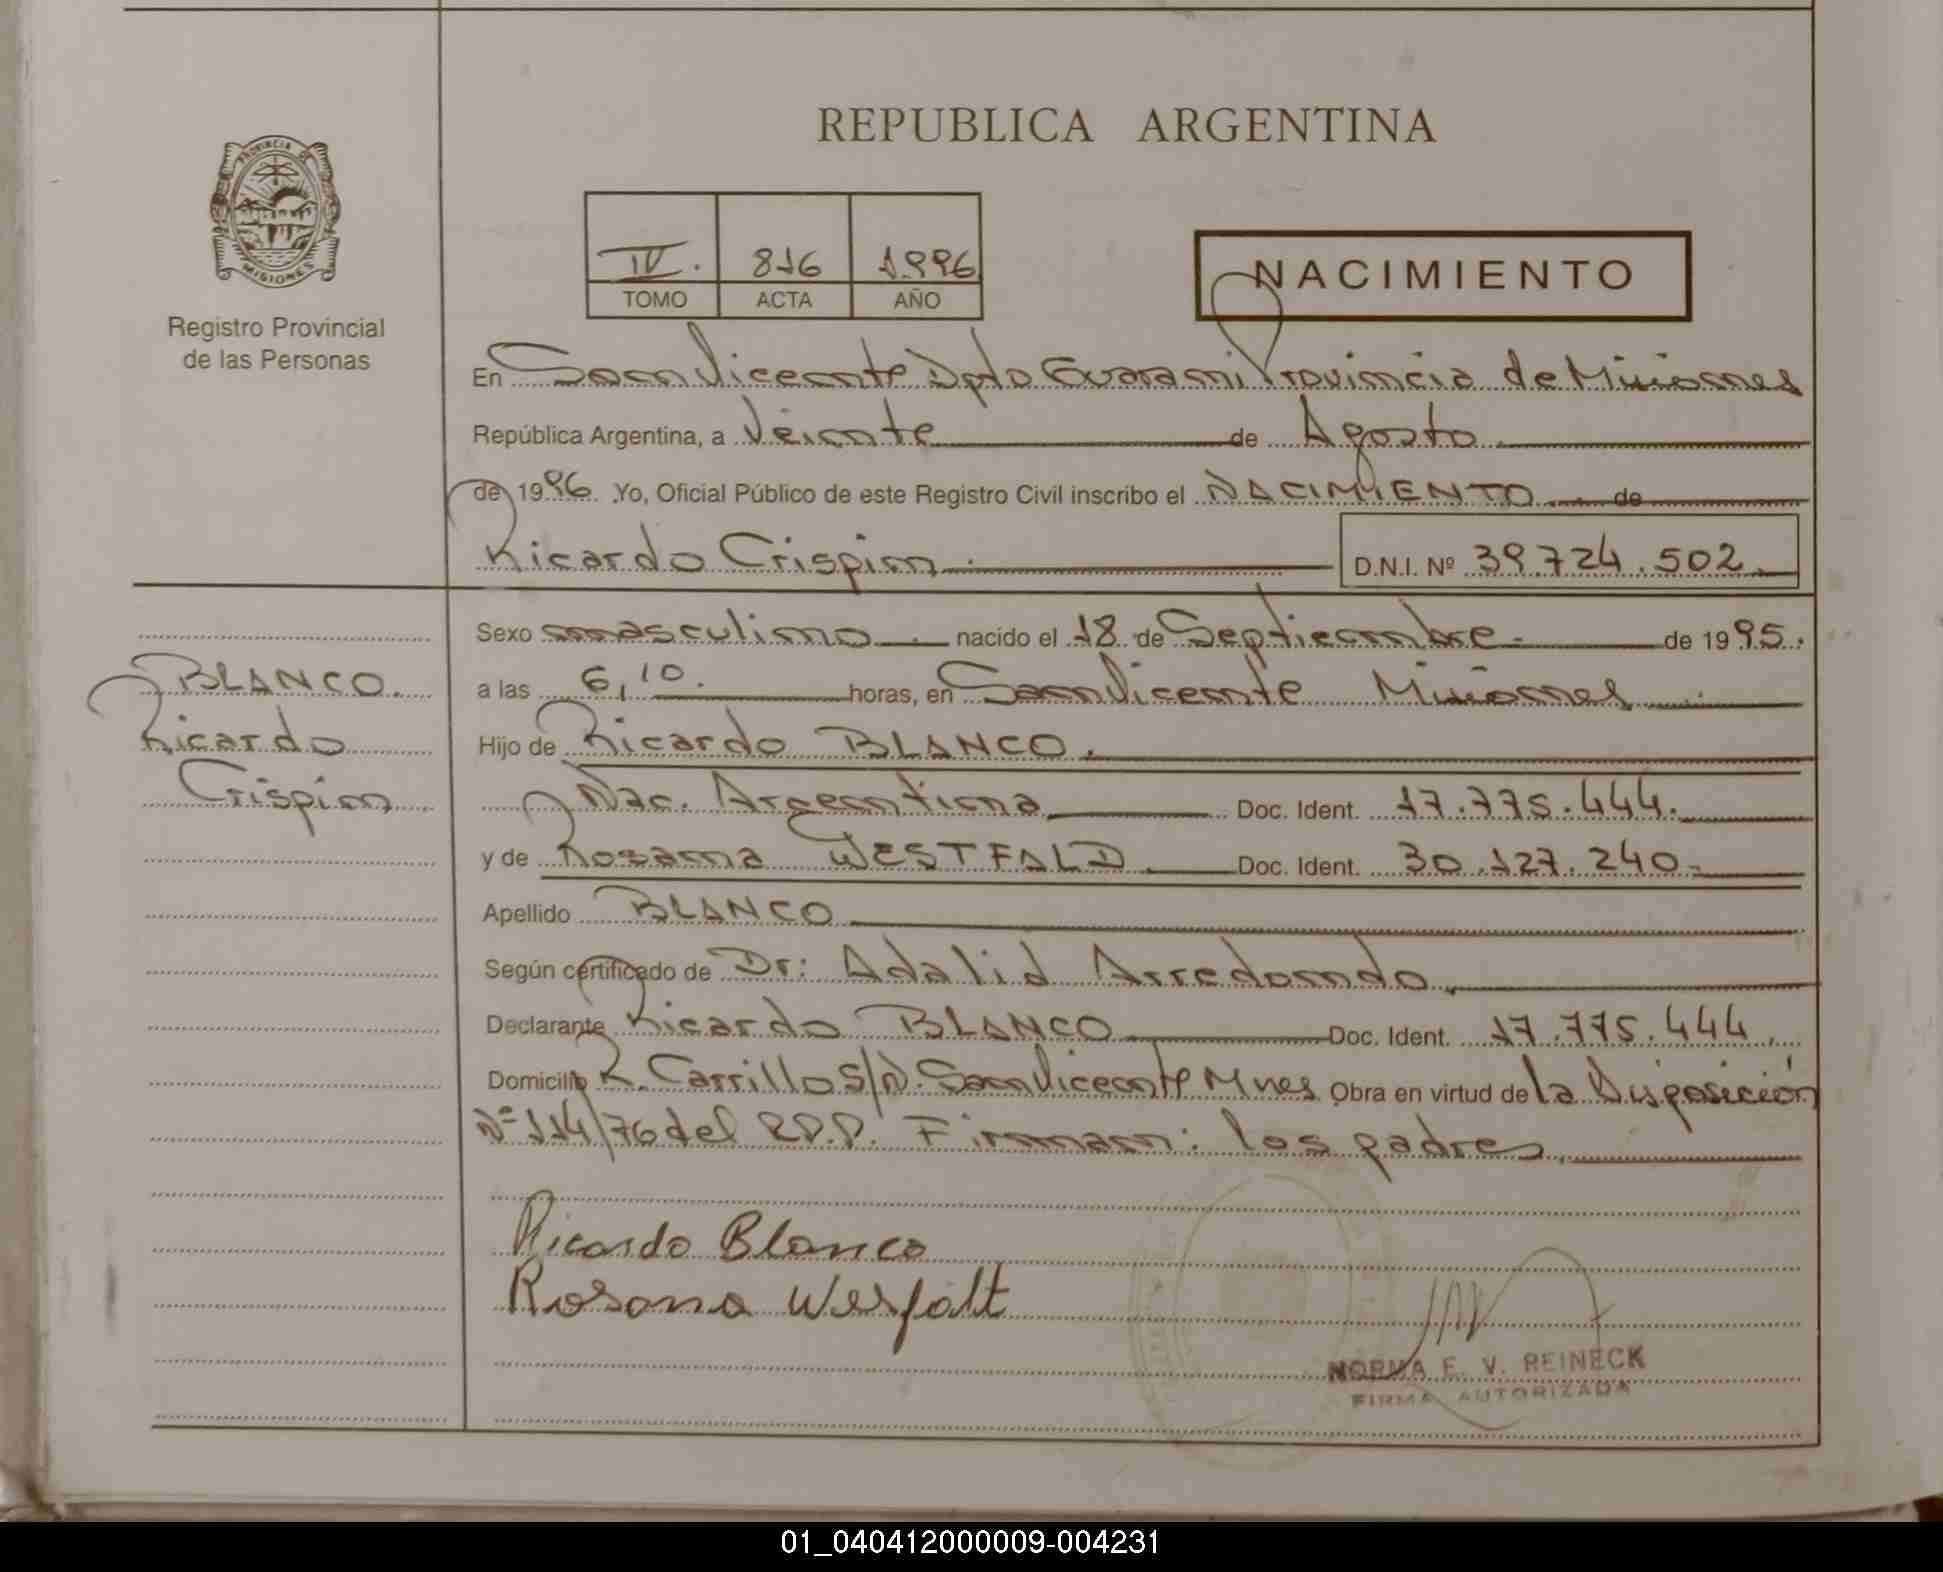 REPUBLICA ARGENTINA
PROVINCIA DE
MISIONES
Registro Provincial
de las Personas
IV. 816 1996
TOMO ACTA AÑO
NACIMIENTO
En San Vicente Dpto Guarani Provincia de Misiones
República Argentina, a Veinte de Agosto
de 1996. Yo, Oficial Público de este Registro Civil inscribo el NACIMIENTO de
Ricardo Crispin D.N.I. Nº 39.724.502
Sexo masculino nacido el 18 de Septiembre de 1995.
a las 6,10. horas, en San Vicente Misiones
Hijo de Ricardo BLANCO.
Nac. Argentina Doc. Ident. 17.775.444.
y de Rosana WESTFALD Doc. Ident. 30.127.240
Apellido BLANCO
Según certificado de Dr: Adalid Arredondo
Declarante Ricardo BLANCO Doc. Ident. 17.775.444
Domicilio R. Carrillo S/N. San Vicente Mnes Obra en virtud de la Disposición
Nº 114/76 del R.P.P. Firman: los padres
BLANCO.
Ricardo
Crispin
Ricardo Blanco
Rosana Wesfalt
NORMA E. V. REINECK
FIRMA AUTORIZADA
01_040412000009-004231